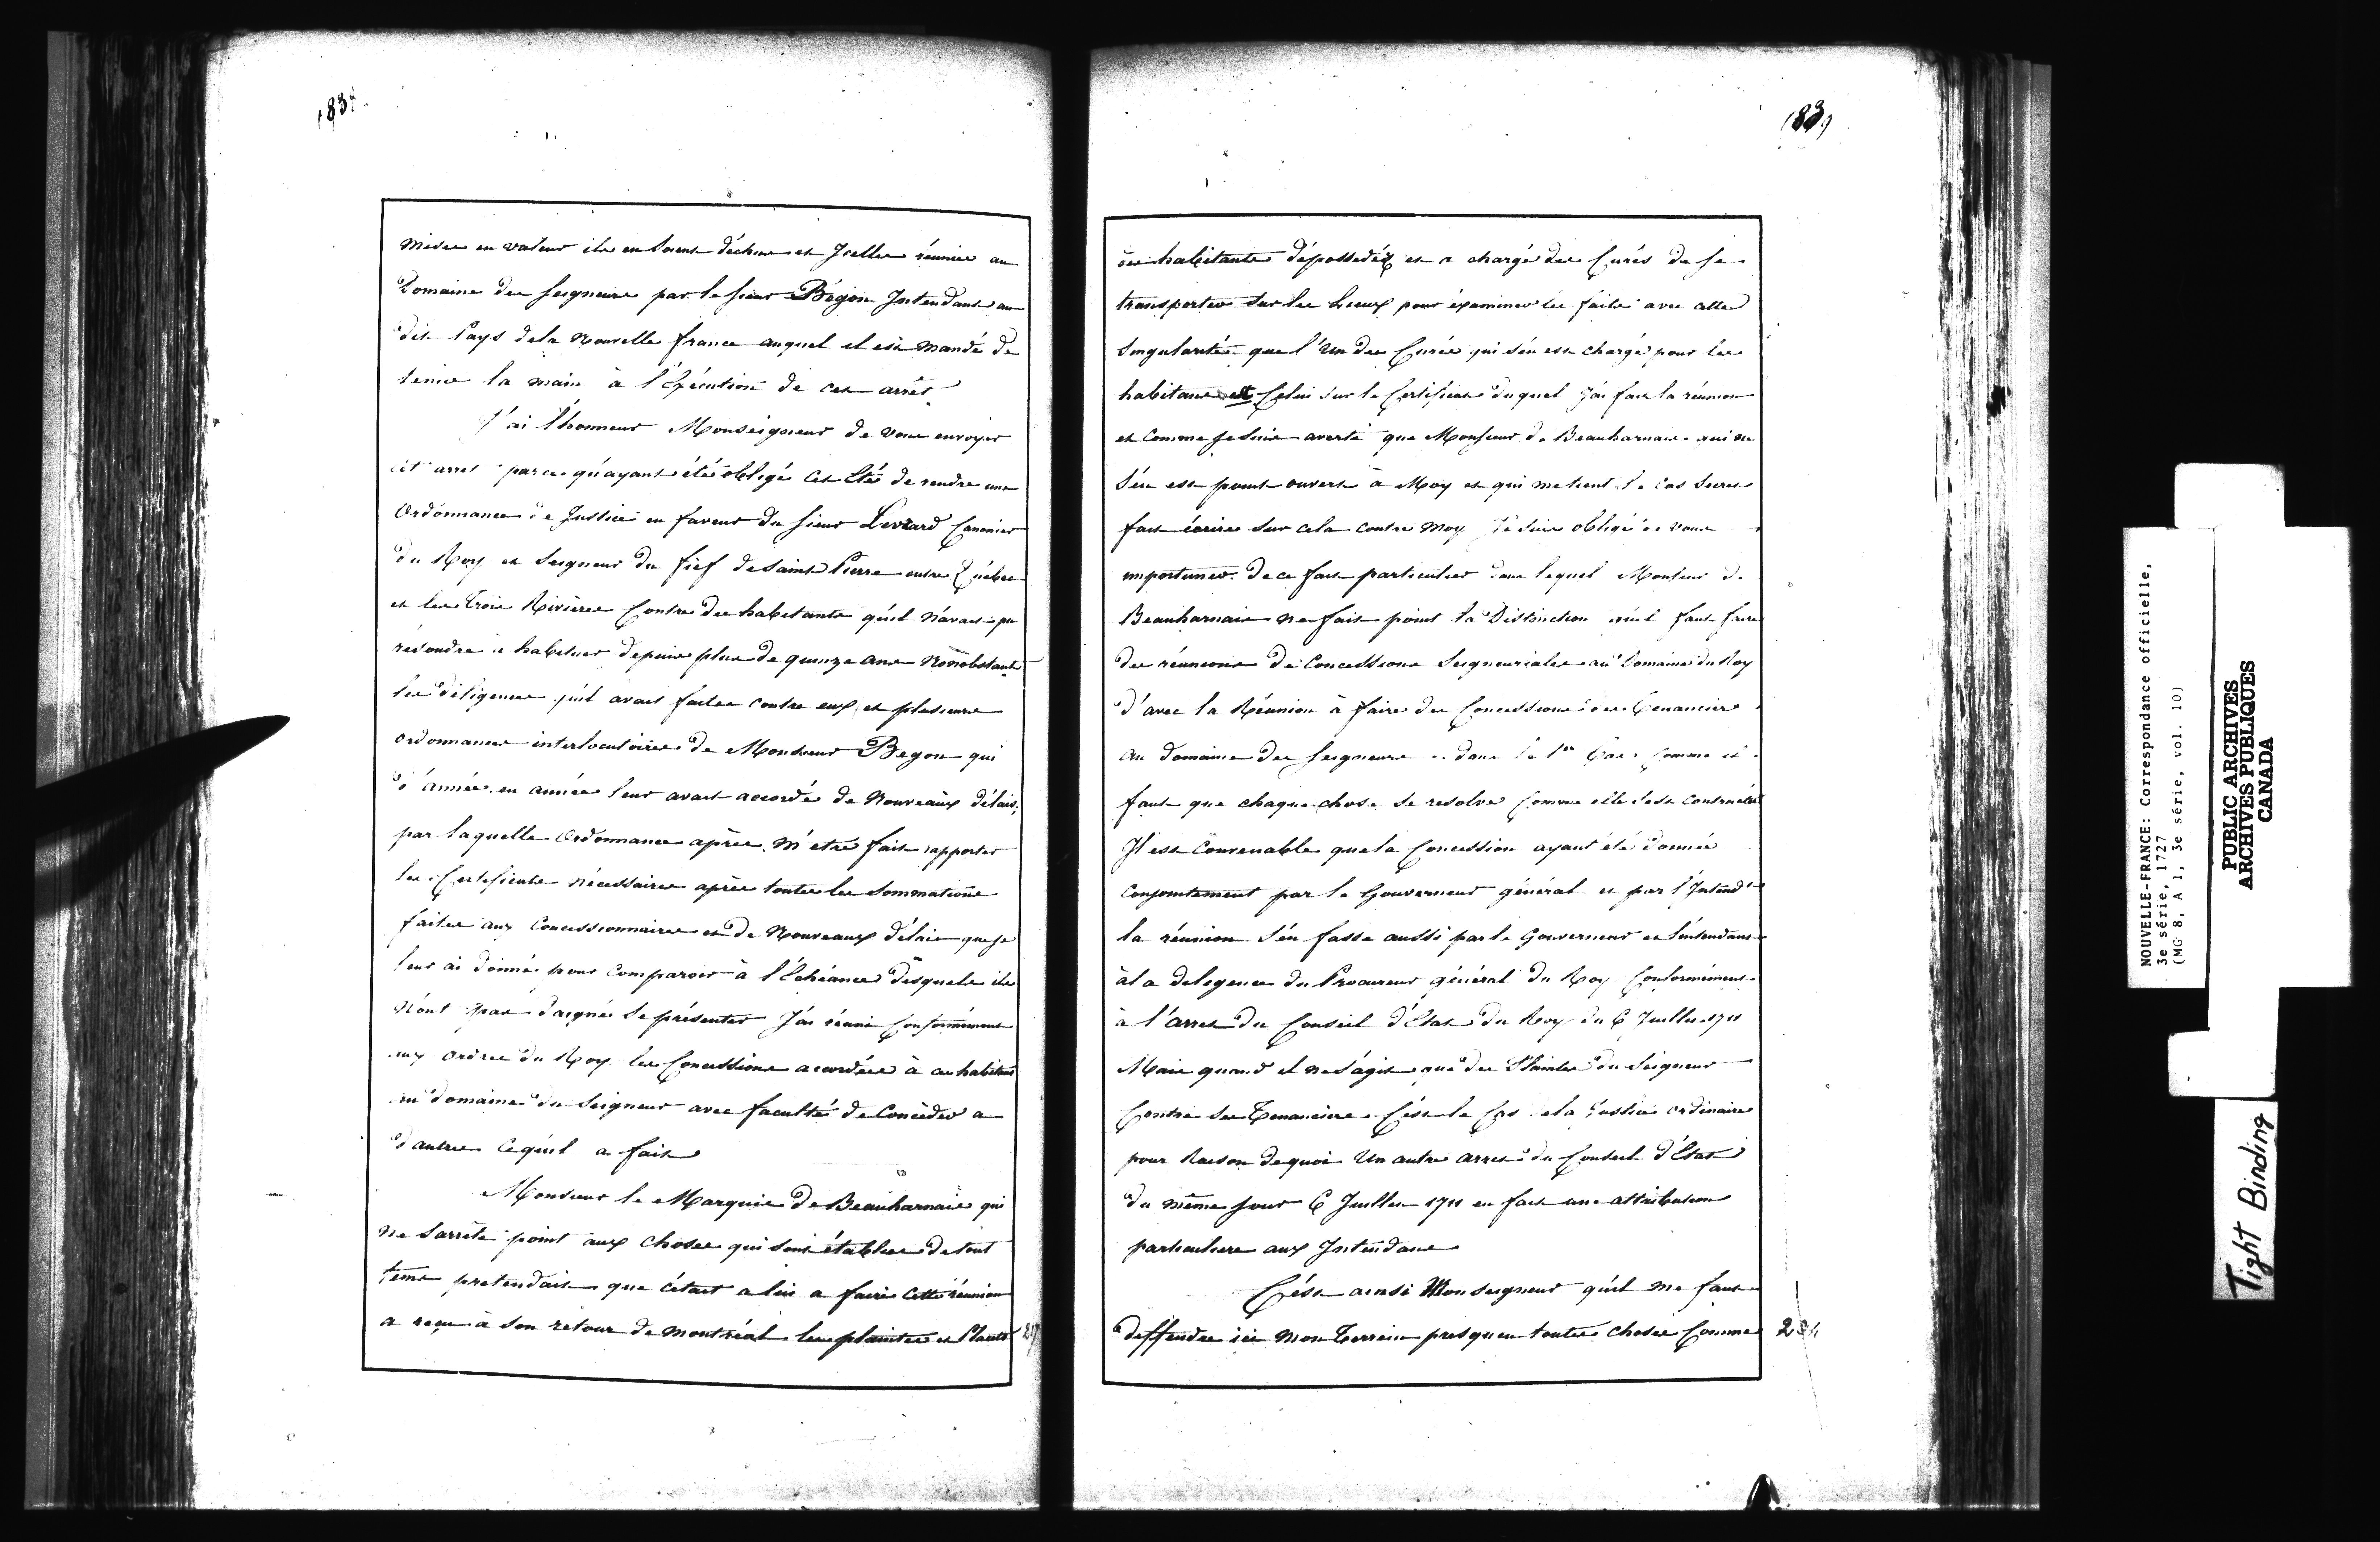 183
mises en valeur ils en soient déchus et Jcelles réunies au
Domaine des seigneurs par le sieur Bégon Jntendant au
dit Pays de la Nouvelle france auquel il est mandé de
tenir la main à l'Exécution de cet arrêt
J'ai l'honneur Monseigneur de vous envoyer
cet arret parce qu'ayant été obligé cet Eté de rendre une
Ordonnance de Justice en faveur du sieur Levrard Canonier
du Roy et Seigneur du fief de Saint Pierre entre Québec
et les trois Rivières Contre des habitants qu'il n'avait pu
résoudre à habituer depuis plus de quinze ans Nonobstant
les diligences qu'il avait faites contre eux et plusieurs
ordonnances interlocutoires de Monsieur Begon qui
d'année en année leur avait accordé de Nouveaux délais,
par laquelle Ordonnance après m'etre fait rapporter
les Certificats nécessaires après toutes les Sommations
faites aux Concessionnaires et de Nouveaux délais que je
leur ai donnés pour comparoir à l'Echéance desquels ils
N'ont pas daigné se présenter J'ai réuni Conformément
aux ordres du Roy les Concessions accordées à ces habitans
au domaine du Seigneur avec faculté de Concéder a
d'autres Cequ'il a fait
Monsieur le Marquis de Beauharnais qui
ne sarrête point aux choses qui sont établies de tout
tems pretendait que c'étoit a lui a faire cette réunion
a reçu à son retour de montréal les plaintes et
1839
des habitants dépossedéz et a chargé des Curés de se
transporter sur les Lieux pour éxaminer les faits avec cette
Singularité que l'Un des Curés qui s'en est chargé pour les
habitans est Celui sur le Certificat duquel J'ai fait la réunion
et Comme Je suis averti que Monsieur de Beauharnais qui ne
s'en est point ouvert à Moy et qui me tient le cas Secret
fait écrire sur cela contre moy Je suis obligé de vous
importuner de ce fait particulier dans lequel Monsieur de
Beauharnais ne fait point la Distinction qu'il faut faire
des réunions de Concessions Seigneuriales au Domaine du Roy
d'avec la Réunion à faire des Concessions des Tenanciers
au domaine des Seigneurs dans le 1er Cas Comme il
faut que chaque chose se resolve Comme elle s'est contractée
Jl est Convenable que la Concession ayant été donnée
conjointement par le Gouverneur général et par l'Intendt
la réunion s'en fasse aussi par le Gouverneur et l'intendant
à la deligence du Procureur général du Roy Conformément
à l'arret du Conseil d'Etat du Roy du 6 Juillet 1711
Mais quand il ne s'agit que des Plaintes du Seigneur
Contre ses Tenanciers C'est le Cas de la Justice ordinaire
pour Raison dequoi Un autre arret du Conseil d'Etat
du même jour 6 Juillet 1711 en fait une attribution
particuliere aux Jntendans
C'ést ainsi Monseigneur qu'il me faut
deffendre ici mon Terrein presqu'en toutes choses Comme
NOUVELLE-FRANCE: Correspondance officielle,
3e série, 1727
(MG 8, A 1, 3e série, vol. 10)
PUBLIC ARCHIVES
ARCHIVES PUBLIQUES
CANADA
Tight Binding